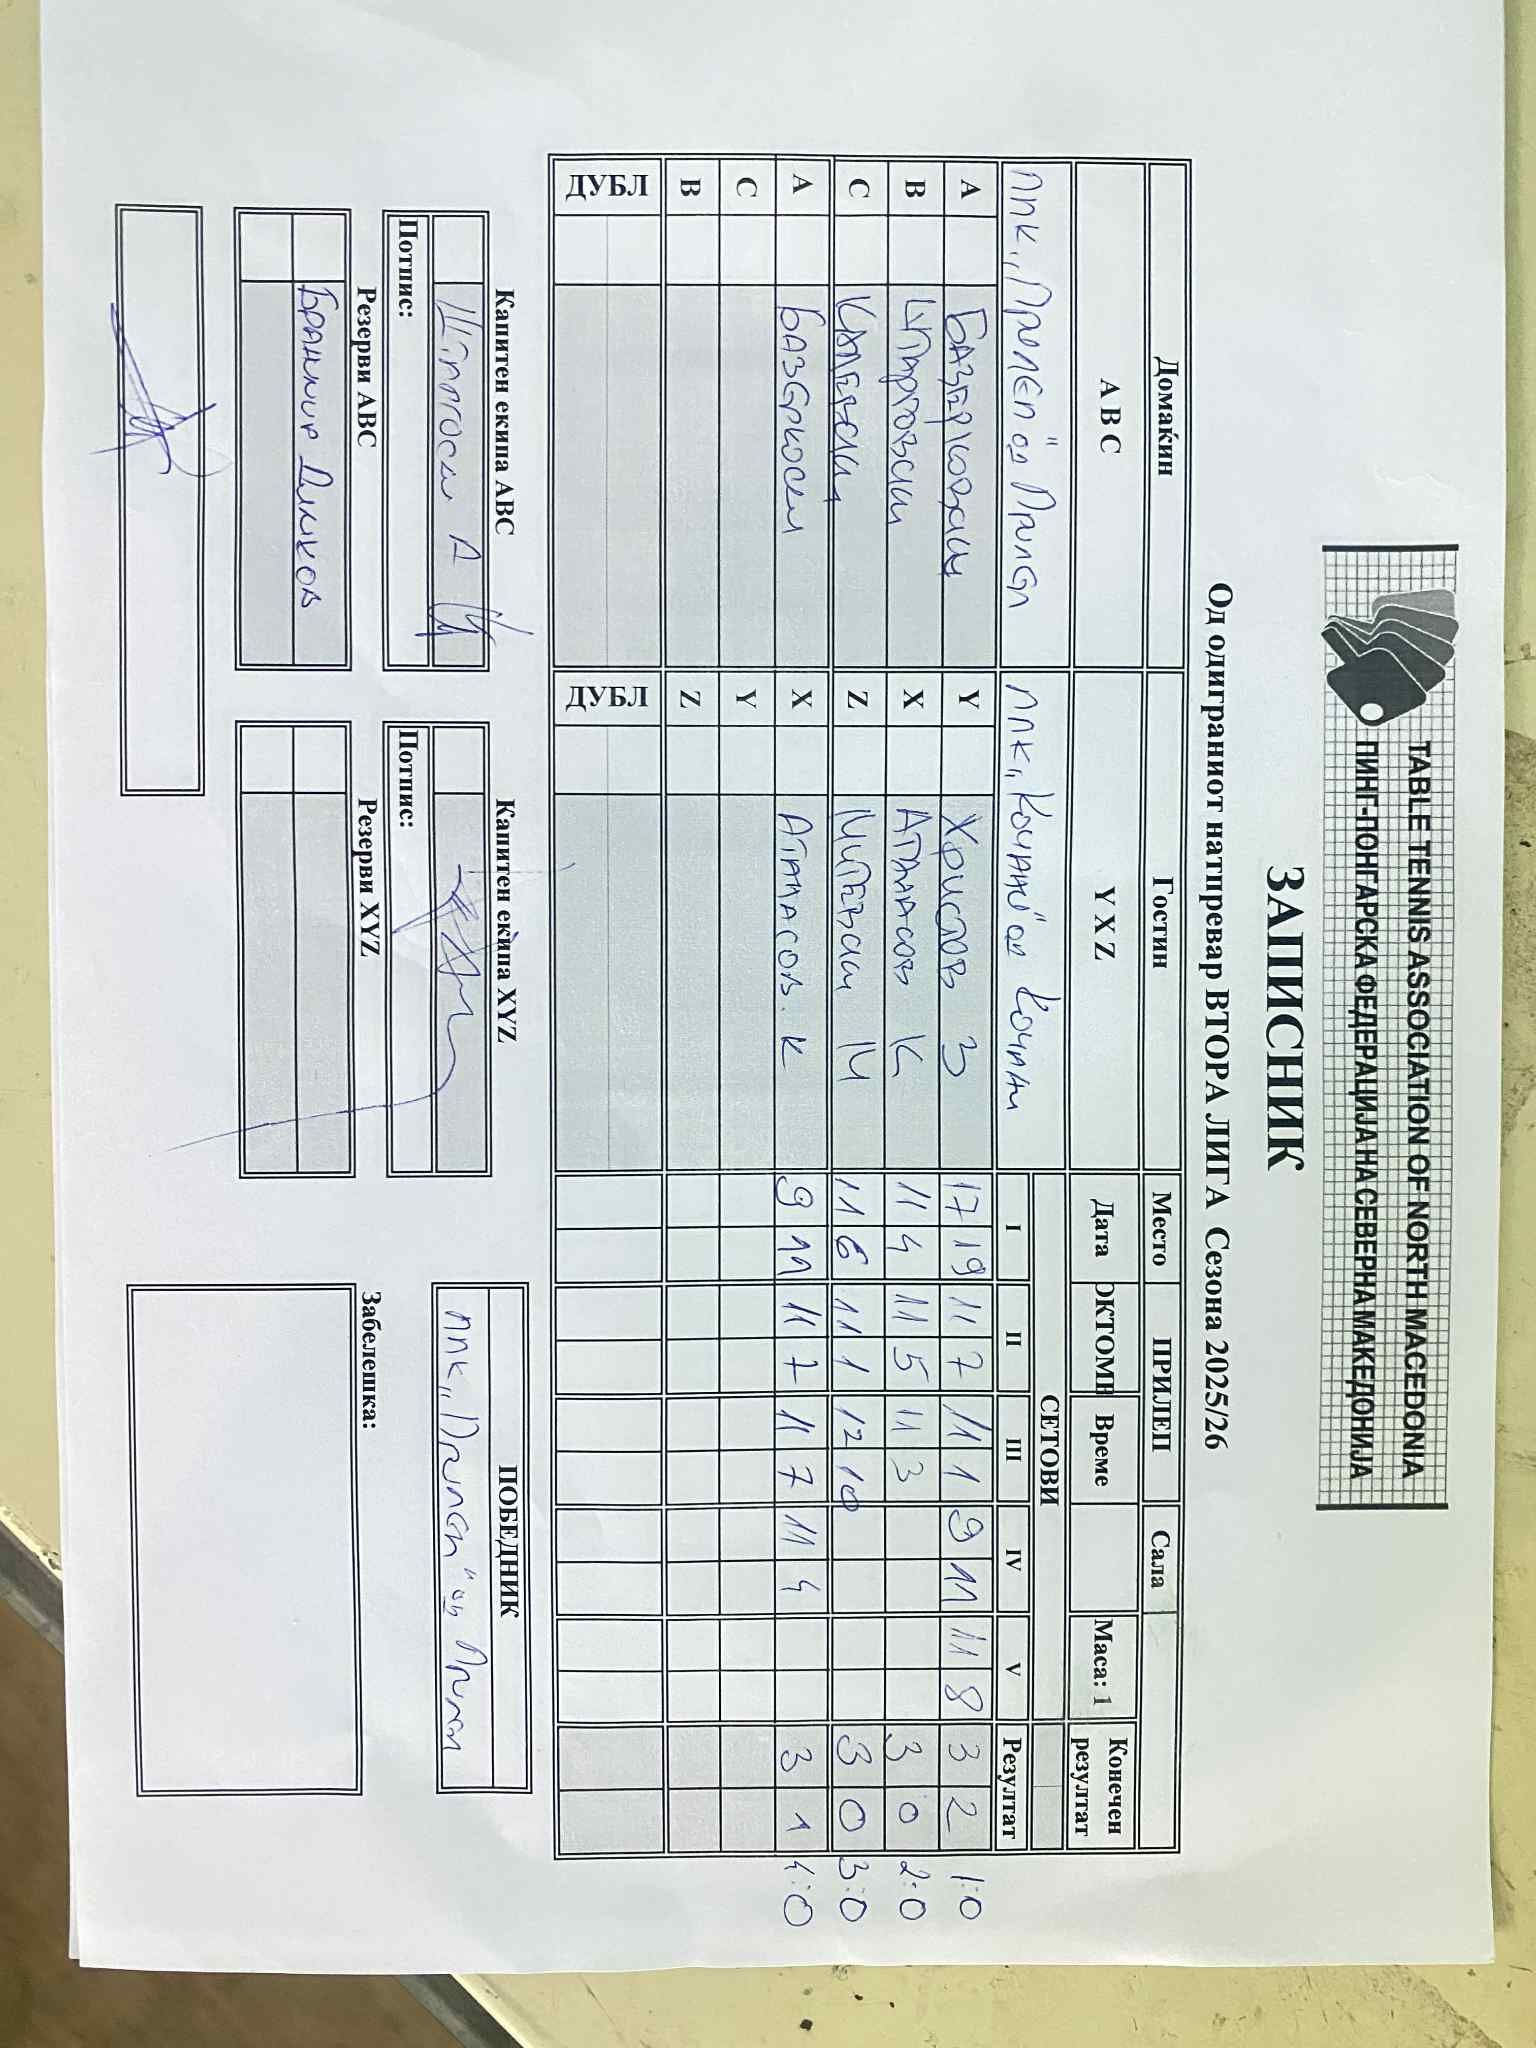 TABLE TENNIS ASSOCIATION OF NORTH MACEDONIA
ПИНГ-ПОНГАРСКА ФЕДЕРАЦИЈА НА СЕВЕРНА МАКЕДОНИЈА
ЗАПИСНИК
Од одиграниот натпревар ВТОРА ЛИГА Сезона 2025/26
Домаќин Гостин Место ПРИЛЕП Сала
A B C Y X Z Дата ОКТОМВ Време Маса: 1 Конечен резултат
ППК„ Прилеп" од Прилеп ППК„ Кочани" од Кочани СЕТОВИ
I II III IV V Резултат
A БАЗЕРКОВСКИ Y Христов З 17 19 11 7 11 1 9 11 11 8 3 2 1:0
B X АТАНАСОВ К 11 4 11 5 11 3 3 0 2:0
C Z МИТЕВСКИ М 11 6 11 1 12 10 3 0 3:0
A БАЗЕРКОСКИ X АТАНАСОВ. К 9 11 11 7 11 7 11 4 3 1 4:0
C Y
B Z
ДУБЛ ДУБЛ
Капитен екипа ABC Капитен екипа XYZ ПОБЕДНИК
А ППК„ Прилеп" од Прилеп
Потпис: Потпис:
Резерви ABC Резерви XYZ Забелешка:
БРАНИМИР ДИМКОВ